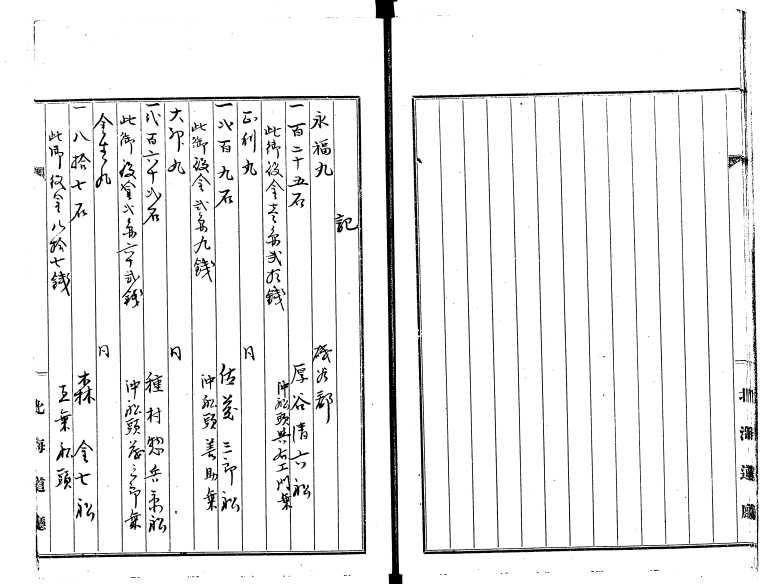 記
永福丸
磯谷郡
一百二十五石
厚谷清六船
此御役金壱両弐拾五銭
沖船頭与右工門乗
正利丸
同
一弐百九石
佐茂三郎船
此御役金弐両九銭
沖船頭善助乗
大卯丸
同
一弐百六十弐石
種村惣兵衛船
此御役金弐両六十弐銭
沖船頭
金生丸
同
一八拾七石
森金七船
此御役金八拾七銭
直乗船頭
北海道廳
北海道廳